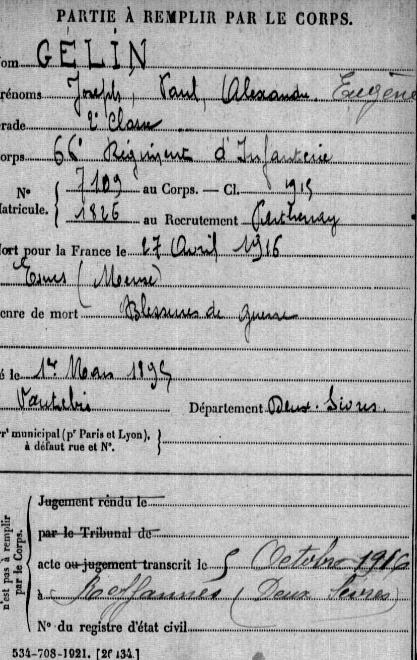 PARTIE À REMPLIR PAR LE CORPS.
om GÉLIN
rénoms Joseph, Paul, Alexandre, Eugène
rade 2e Classe
orps 66e Régiment d'Infanterie
No 7109 au Corps. — Cl. 1915
atricule. 1826 au Recrutement Parthenay
ort pour la France le 27 Avril 1916
Esnes (Meuse)
enre de mort Blessures de guerre
é le 1er Mars 1895
Département Deux-Sèvres.
rt municipal (pr Paris et Lyon),
à défaut rue et No.
n'est pas à remplir
par le Corps.
Jugement rendu le
par le Tribunal de
acte ou jugement transcrit le 5 Octobre 1916
à Reffannes (Deux Sèvres)
No du registre d'état civil
534-708-1921. [26434.]